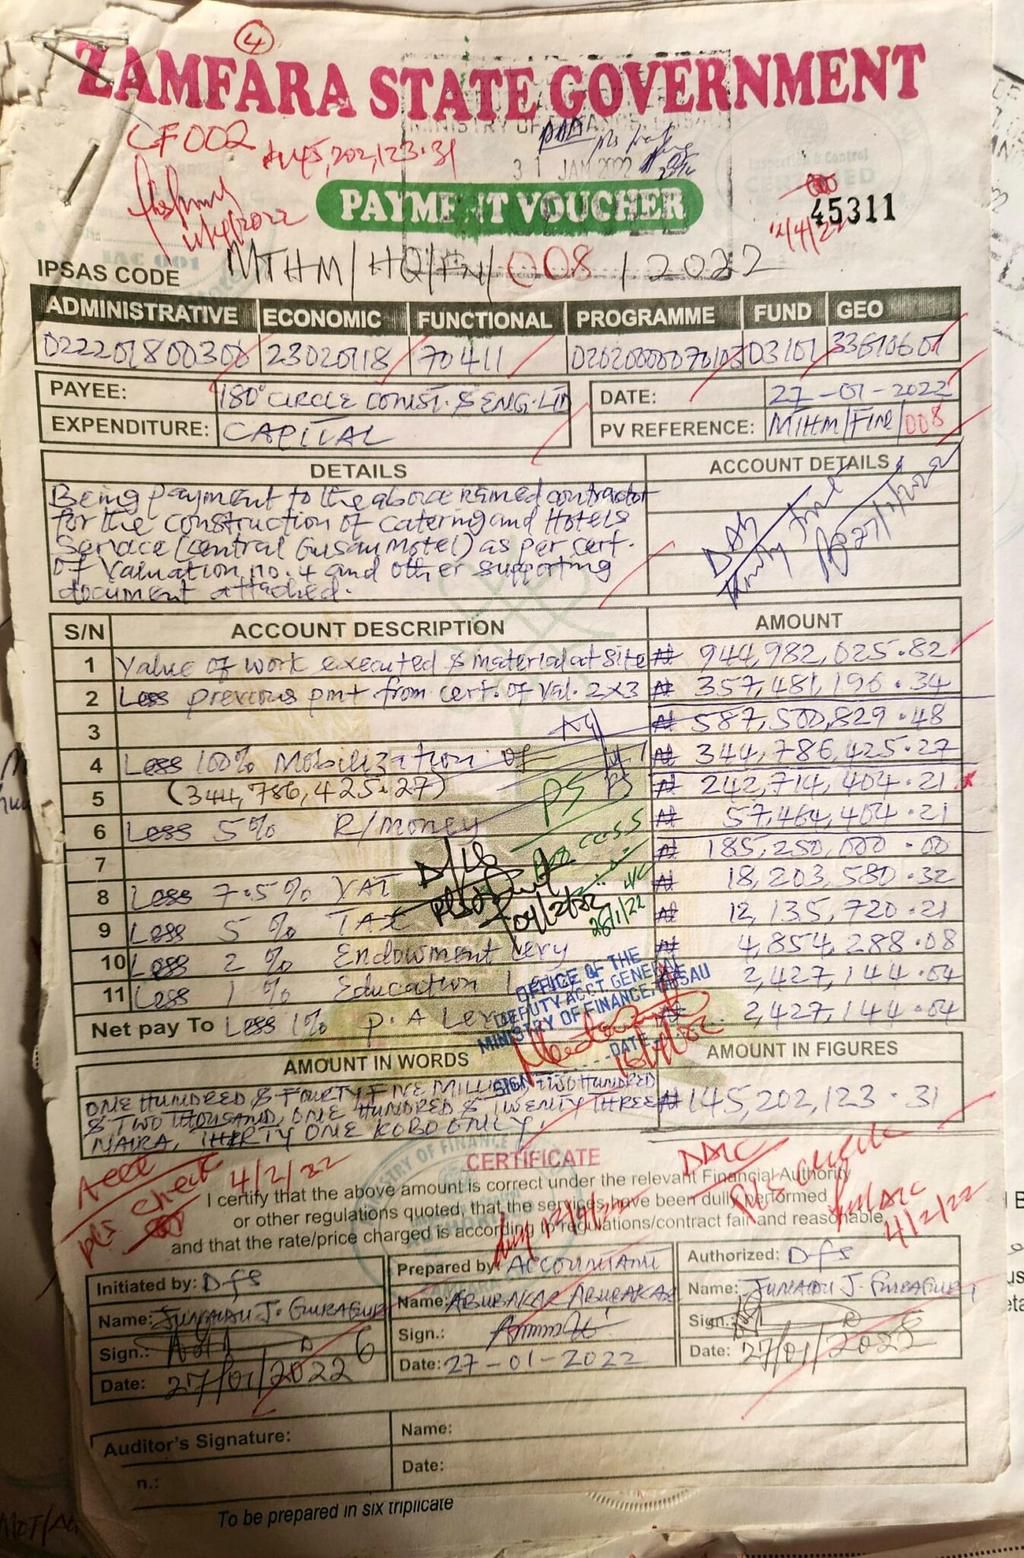 4
ZAMFARA STATE GOVERNMENT
CF002
₦145,202,123.31
MINISTRY OF FINANCE
31 JAN 2022
PAYMENT VOUCHER
45311
IPSAS CODE MTHM/HQ/FN/008/2022
ADMINISTRATIVE ECONOMIC FUNCTIONAL PROGRAMME FUND GEO
022201800300 23020118 70411 03101 33610601
PAYEE: 180° CIRCLE CONST. & ENG. LTD DATE: 27-01-2022
EXPENDITURE: CAPITAL PV REFERENCE: MTHM/FIN/008
DETAILS ACCOUNT DETAILS
Being payment to the above named contractor
for the construction of Catering and Hotels
Service (central Gusau Motel) as per cert.
of Valuation no. 4 and other supporting
document attached.
27/1/2022
S/N ACCOUNT DESCRIPTION AMOUNT
1 Value of work executed & material at site ₦ 944,982,025.82
2 Less previous pmt from cert. of Val. 2x3 ₦ 357,481,196.34
3 ₦ 587,500,829.48
4 Less 100% Mobilization of ₦ 344,786,425.27
5 (344,786,425.27) ₦ 242,714,404.21
6 Less 5% R/money ₦ 57,464,404.21
7 ₦ 185,250,000.00
8 Less 7.5% VAT ₦ 18,203,580.32
9 Less 5% TAX ₦ 12,135,720.21
10 Less 2% Endowment Levy ₦ 4,854,288.08
11 Less 1% Education ₦ 2,427,144.04
Net pay To Less 1% P.A Levy 2,427,144.04
PS
Process
26/1/22
OFFICE OF THE
DEPUTY ACCT GENERAL
MINISTRY OF FINANCE, GUSAU
SIGN
DATE
AMOUNT IN WORDS AMOUNT IN FIGURES
ONE HUNDRED & FOURTY FIVE MILLION TWO HUNDRED
& TWO THOUSAND, ONE HUNDRED & TWENTY THREE
NAIRA, THIRTY ONE KOBO ONLY.
₦145,202,123.31
CERTIFICATE
pls check 4/2/22
4/2/22
I certify that the above amount is correct under the relevant Financial Authority
or other regulations quoted, that the services have been dully performed
and that the rate/price charged is according to regulations/contract fair and reasonable
Initiated by: Dfs Prepared by: ACCOUNTANT Authorized: Dfs
Name: JUNAIDU J. Name: ABUBAKAR ABUBAKAR Name: JUNAIDU J.
Sign.: Sign.: Sign.:
Date: 27/01/2022 Date: 27-01-2022 Date: 27/01/2022
Auditor's Signature: Name:
n.: Date:
To be prepared in six triplicate